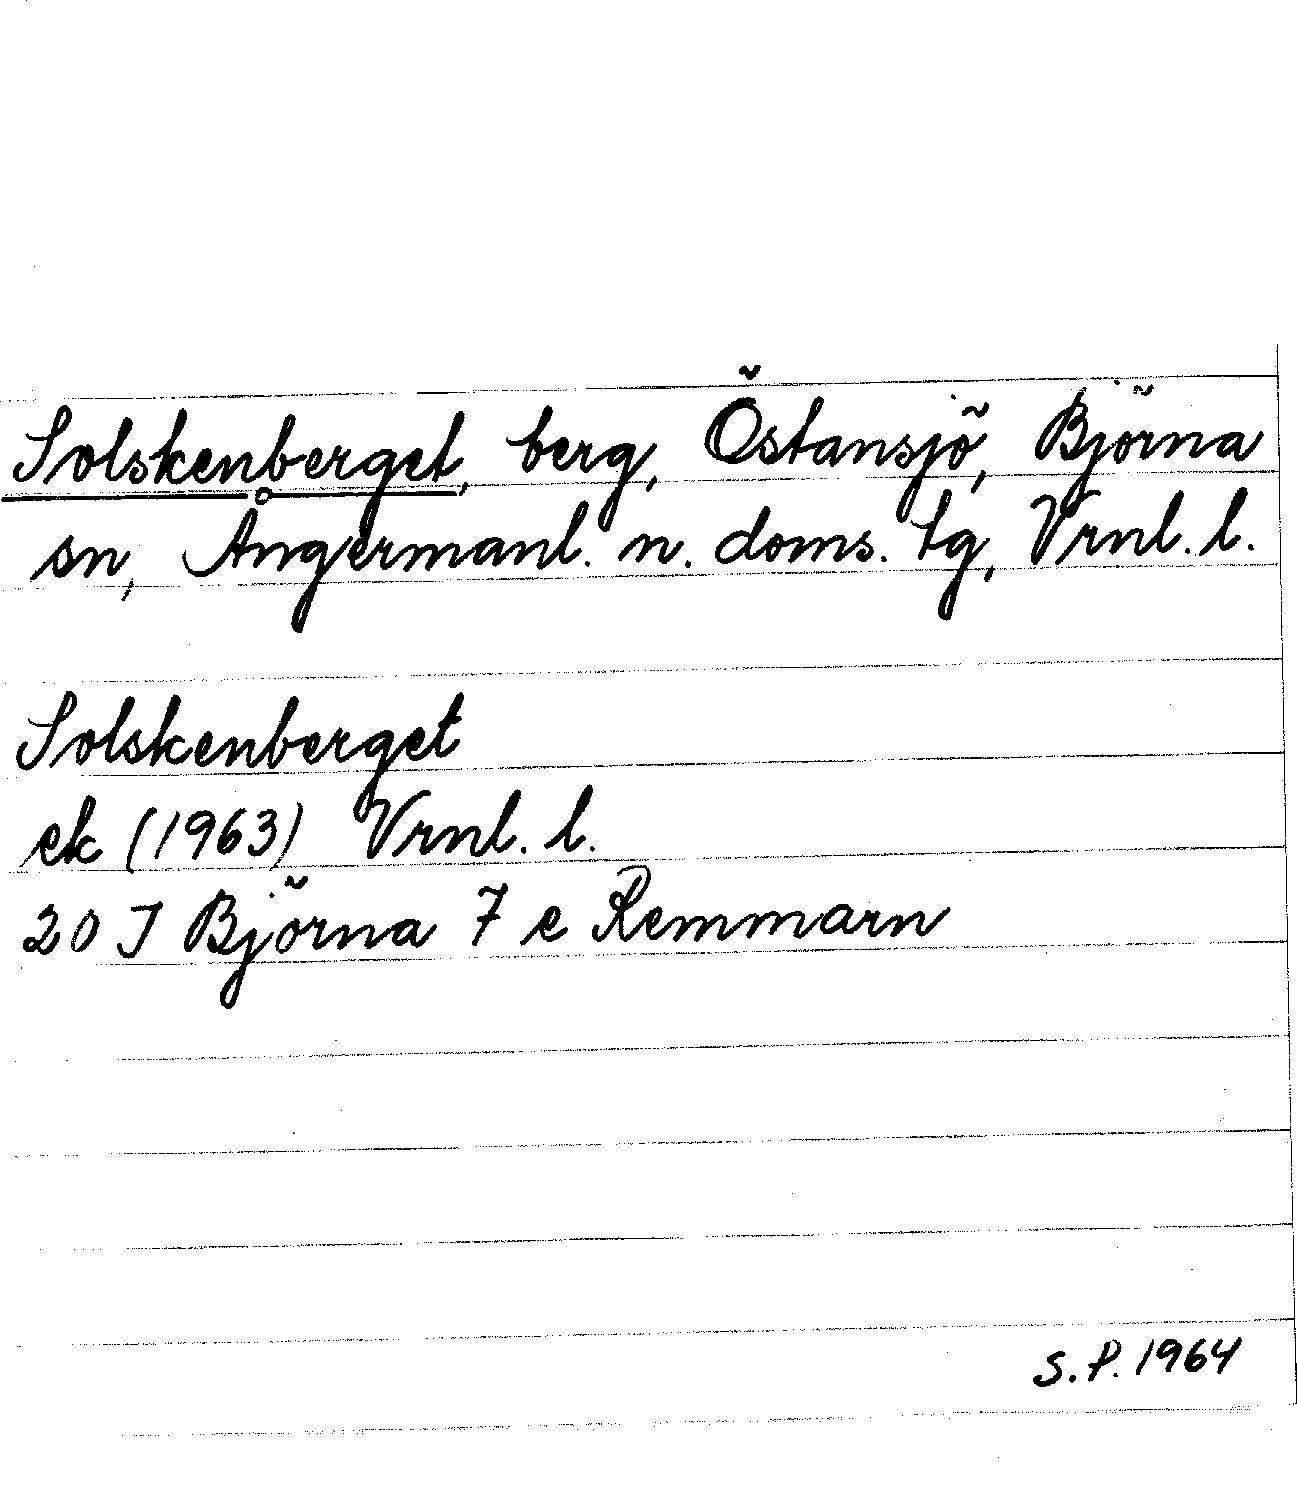 Solskenberget, berg, Östansjö, Björna
sn, Ångermanl. n. doms. tg, Vrnl. l.
Solskenberget
ek (1963) Vrnl. l.
20 J Björna 7 e Remmarn
S.P. 1964